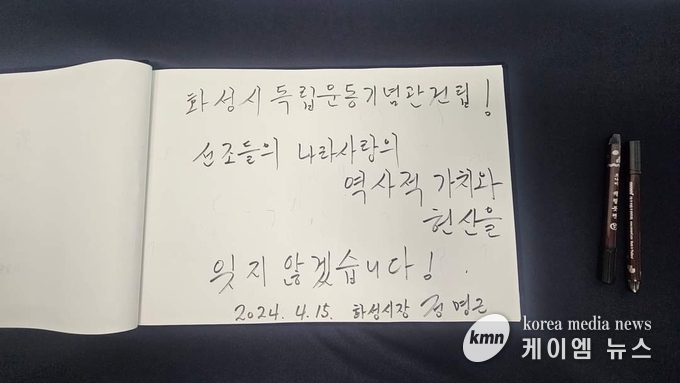 화성시독립운동기념관건립!
선조들의 나라사랑의
역사적 가치와
헌산을
잊지 않겠습니다!
2024. 4. 15. 화성시장 정명근
kmn
korea media news
케이엠 뉴스